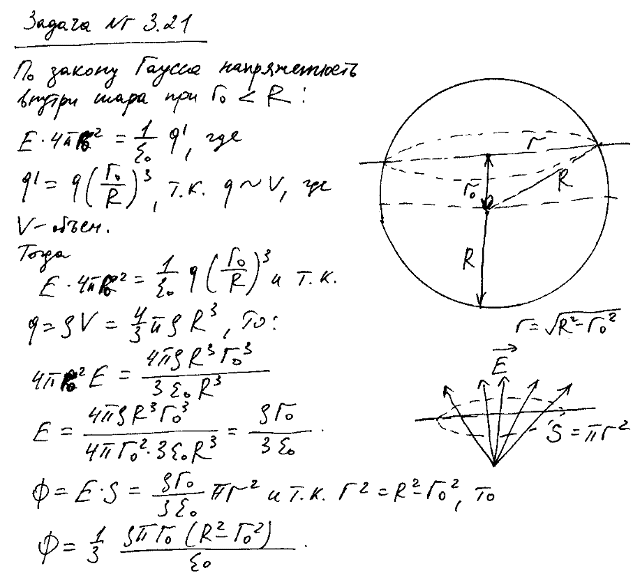 Задача № 3.21
По закону Гаусса напряженность
внутри шара при r₀ < R :
E·4πr₀² = 1/ε₀ q', где
q' = q(r₀/R)³, т.к. q ~ V, где
V – объем.
Тогда
E·4πr₀² = 1/ε₀ q(r₀/R)³ и т.к.
q = ρV = 4/3 πρR³, то:
4πr₀²E = 4πρR³r₀³/3ε₀R³
E = 4πρR³r₀³/4πr₀²·3ε₀R³ = ρr₀/3ε₀.
Φ = E·S = ρr₀/3ε₀ πr² и т.к. r² = R²–r₀², то
Φ = 1/3 ρπr₀(R²–r₀²)/ε₀.
r
r₀
R
R
r = √R²–r₀²
E
S = πr²